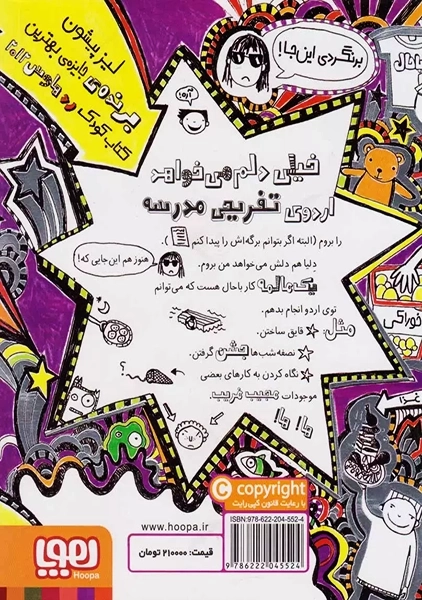 لیز پیشون
برنده‌ی جایزه‌ی بهترین
کتاب کودک رد هاوس ۲۰۱۲
برنگردی این‌جا!
آره!
خیلی دلم می‌خواهد
اردوی تفریحی مدرسه
را بروم (البته اگر بتوانم برگه‌اش را پیدا کنم).
دلیا هم دلش می‌خواهد من بروم.
هنوز هم این‌جایی که!
یک‌عالمه کار باحال هست که می‌توانم
توی اردو انجام بدهم.
مثل:
قایق ساختن.
نصفه‌شب‌ها جشن گرفتن.
نگاه کردن به کارهای بعضی
موجودات عجیب غریب
ها! ها!
خوراکی
غزا
copyright
با رعایت قانون کپی‌رایت
ISBN:978-622-204-552-4
9 786222 045524
www.hoopa.ir
قیمت: ۲۱۰۰۰۰ تومان
هوپا
Hoopa